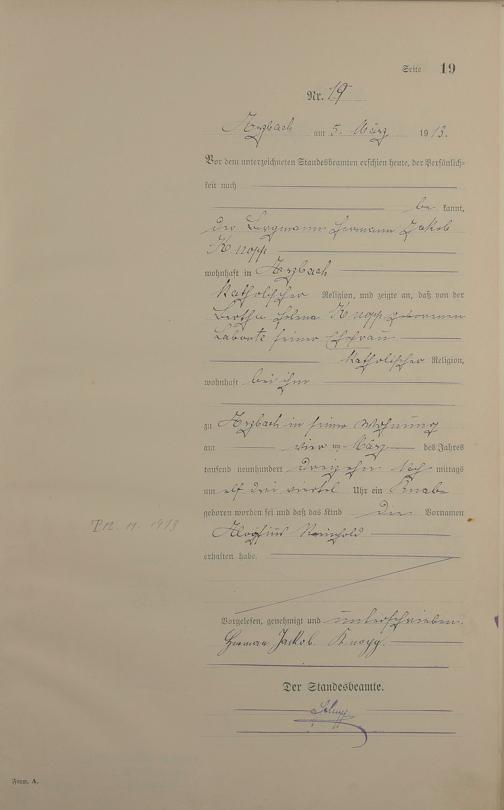 Seite 19
Nr. 19
Arzbach am 5. März 1913.
Vor dem unterzeichneten Standesbeamten erschien heute, der Persönlich-
keit nach
be kannt,
der Bergmann Hermann Jakob
Knopp
wohnhaft in Arzbach
Katholischer Religion, und zeigte an, daß von der
Bertha Helena Knopp geborenen
Labonte seiner Ehefrau
Katholischer Religion,
wohnhaft bei ihm
zu Arzbach in seiner Wohnung
am vier ten März des Jahres
tausend neunhundert dreizehn Nach mittags
um elf drei viertel Uhr ein Knabe
geboren worden sei und daß das Kind die Vornamen
Aloysius Reinhold
erhalten habe.
Vorgelesen, genehmigt und unterschrieben.
Herman Jackob Knopp
Der Standesbeamte.
Form. A.